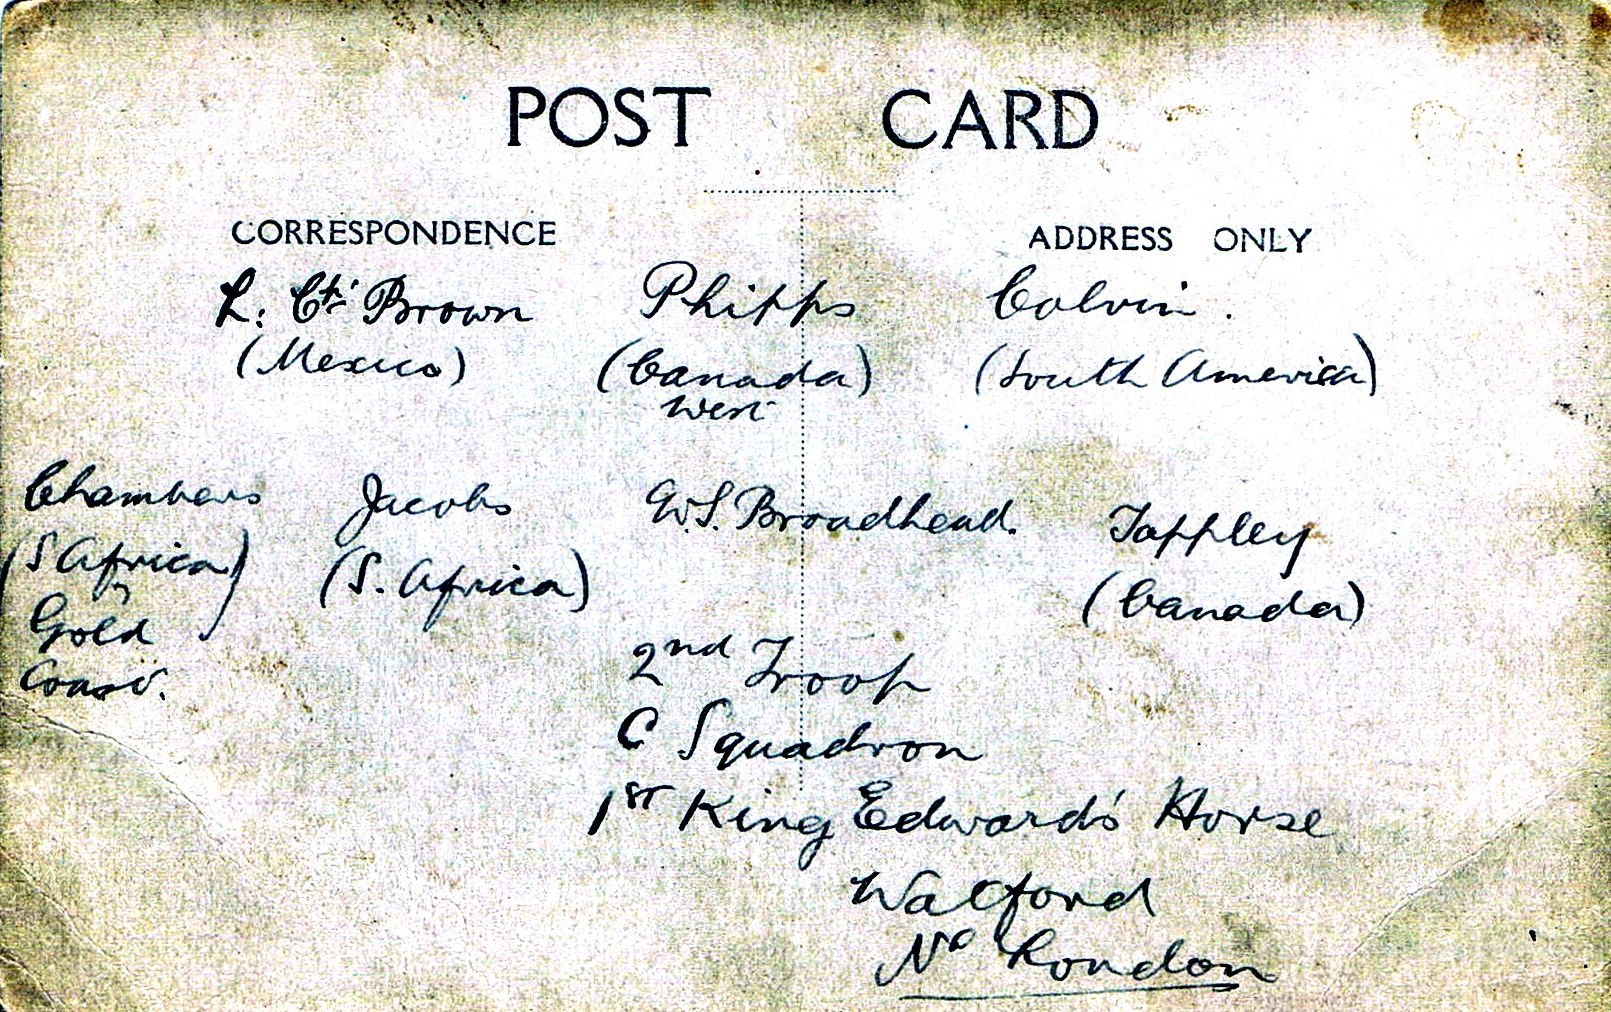 POST CARD
CORRESPONDENCE ADDRESS ONLY
L. Ct. Brown Phipps Colvin.
(Mexico) (Canada) (South America)
West
Chambers Jacobs G.S. Broadhead. Tappley
(S Africa) (S. Africa) (Canada)
Gold
Coast.
2nd Troop
C Squadron
1st King Edward's Horse
Watford
Nr London